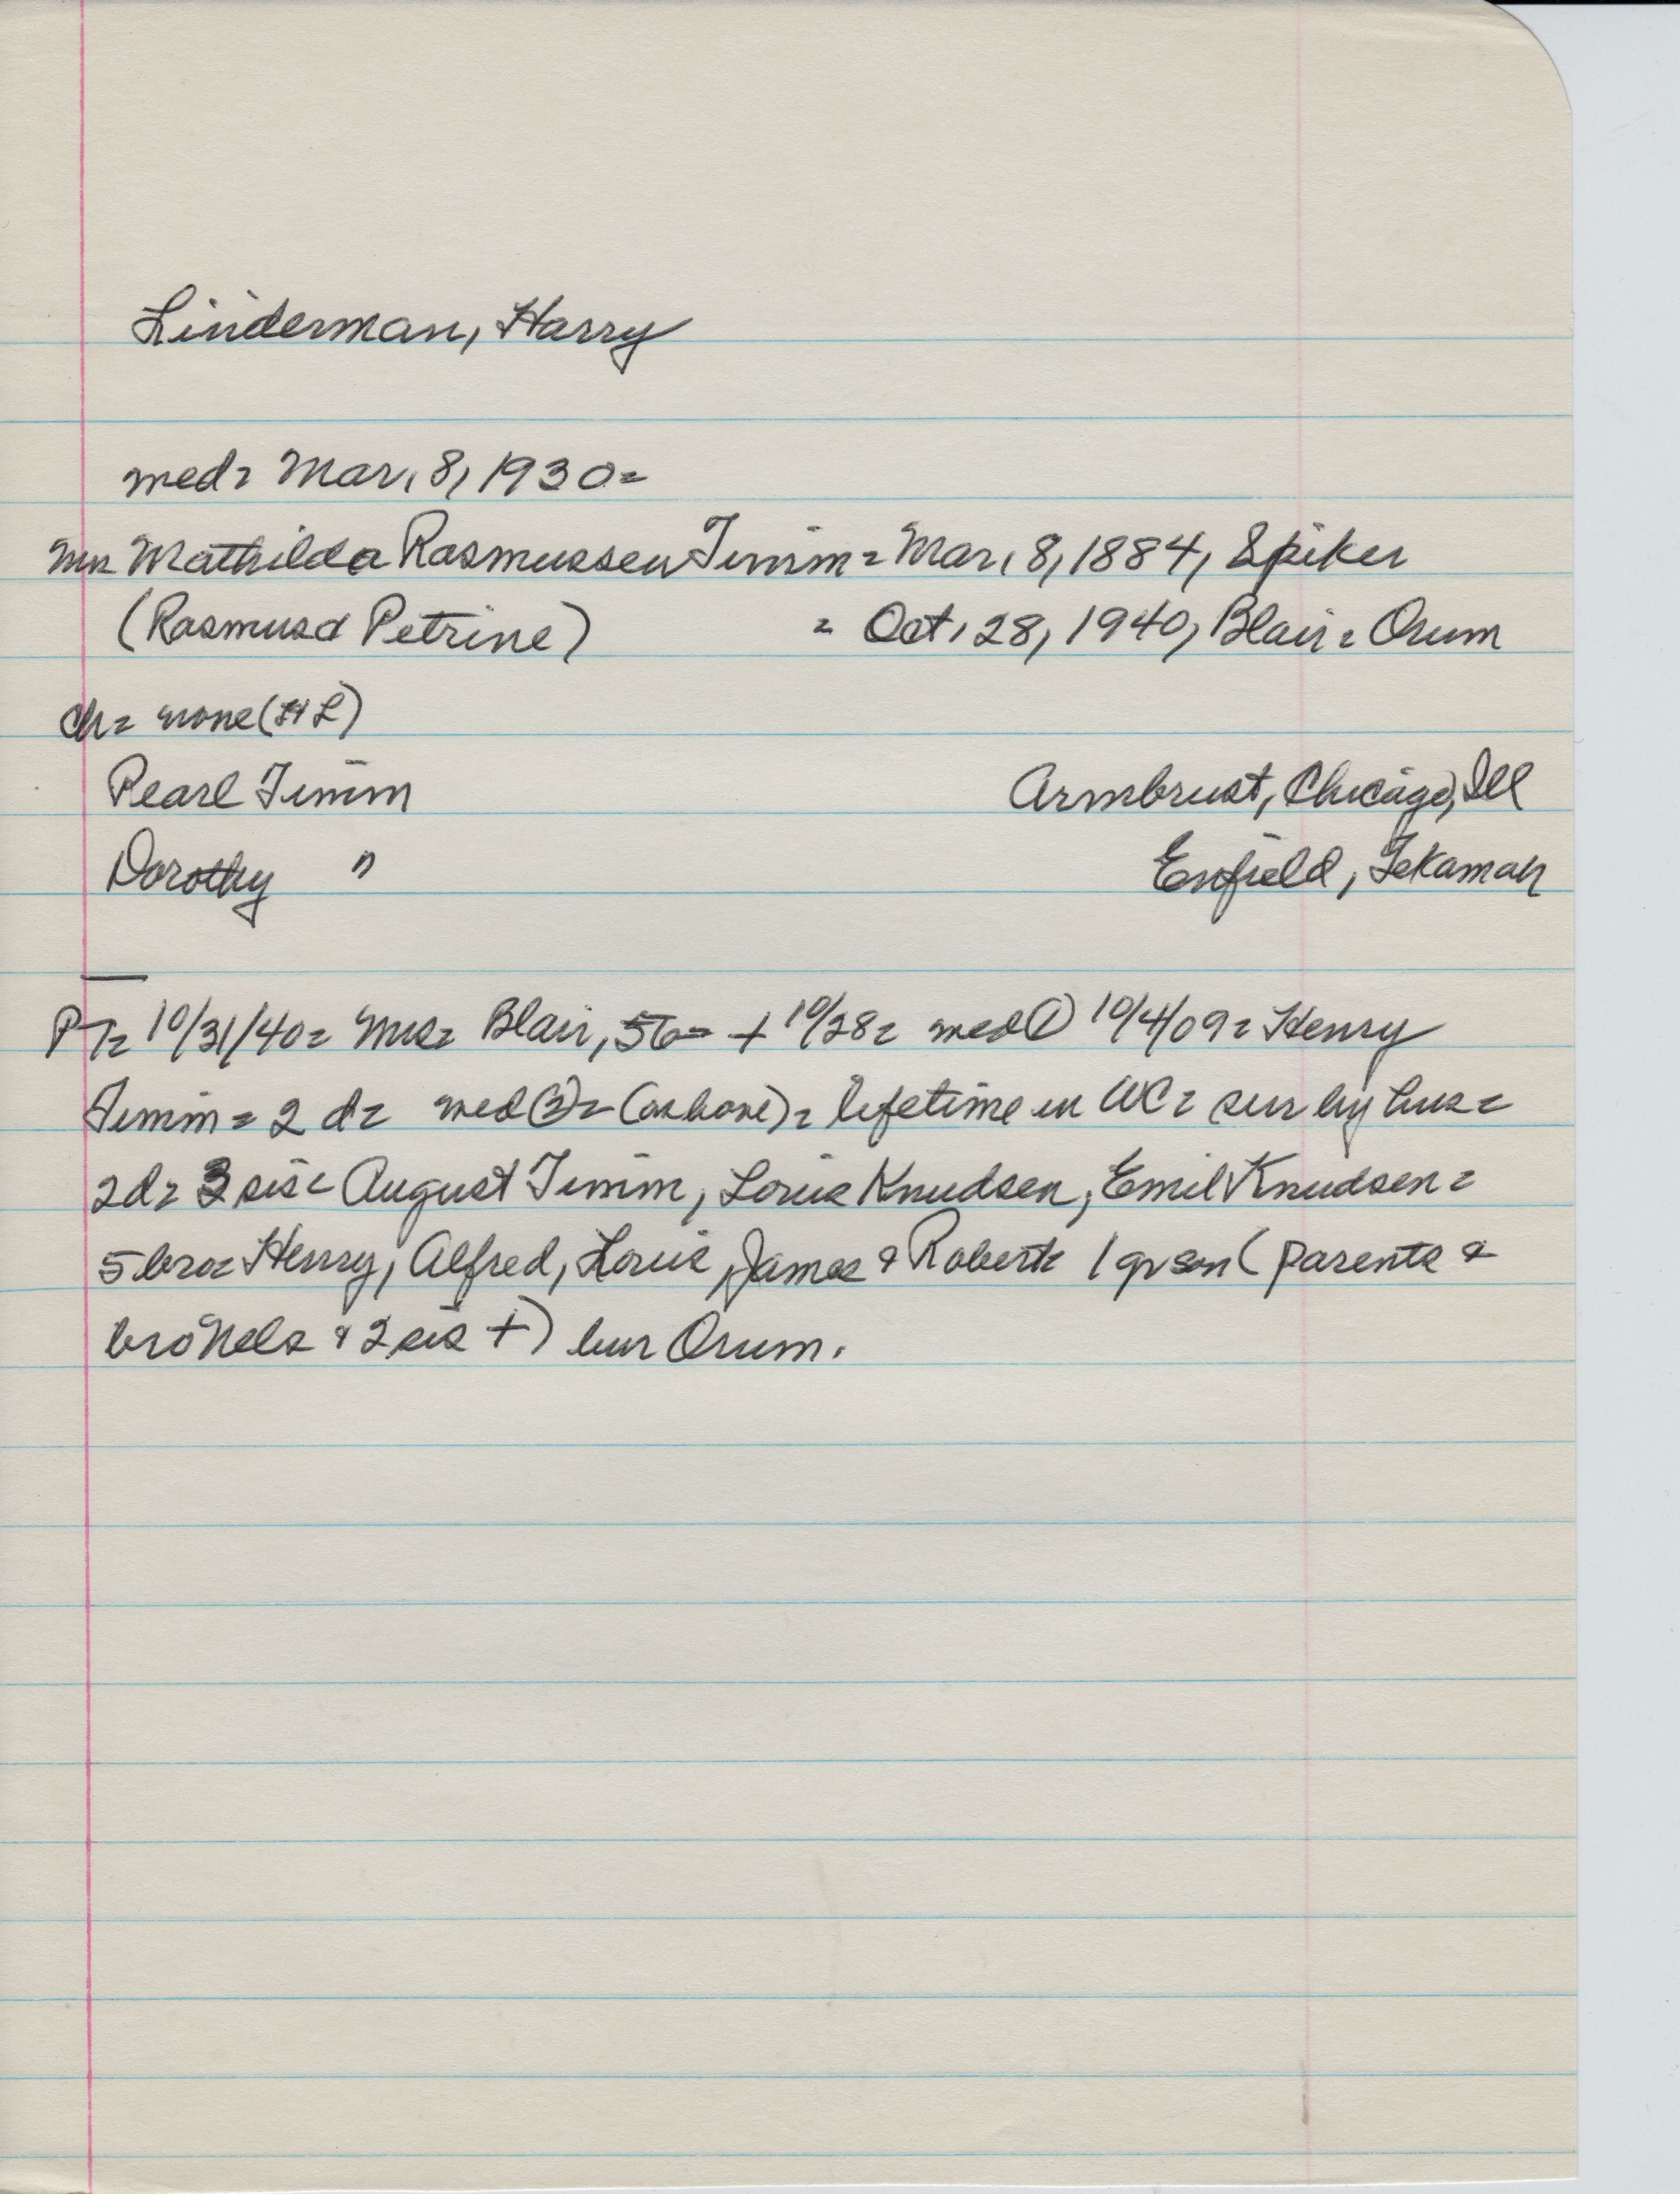 Linderman, Harry
med= Mar. 8, 1930=
Mrs Mathilda Rasmussen Timm = Mar. 8, 1884, Spiker
(Rasmus & Petrine) = Oct. 28, 1940, Blair = Orum
Ch= none (HL)
Pearl Timm Armbrust, Chicago, Ill
Dorothy " Enfield, Tekamah
PT= 10/31/40= Mrs= Blair, 56= + 10/28= med① 10/4/09= Henry
Timm = 2 d= med②= (as above)= lifetime in WC= sur by hus=
2d= 3 sis= August Timm, Louis Knudsen, Emil Knudsen=
5 bro= Henry, Alfred, Louis, James & Robert= 1 gr son (parents &
bro Nels & 2 sis +) bur Orum.